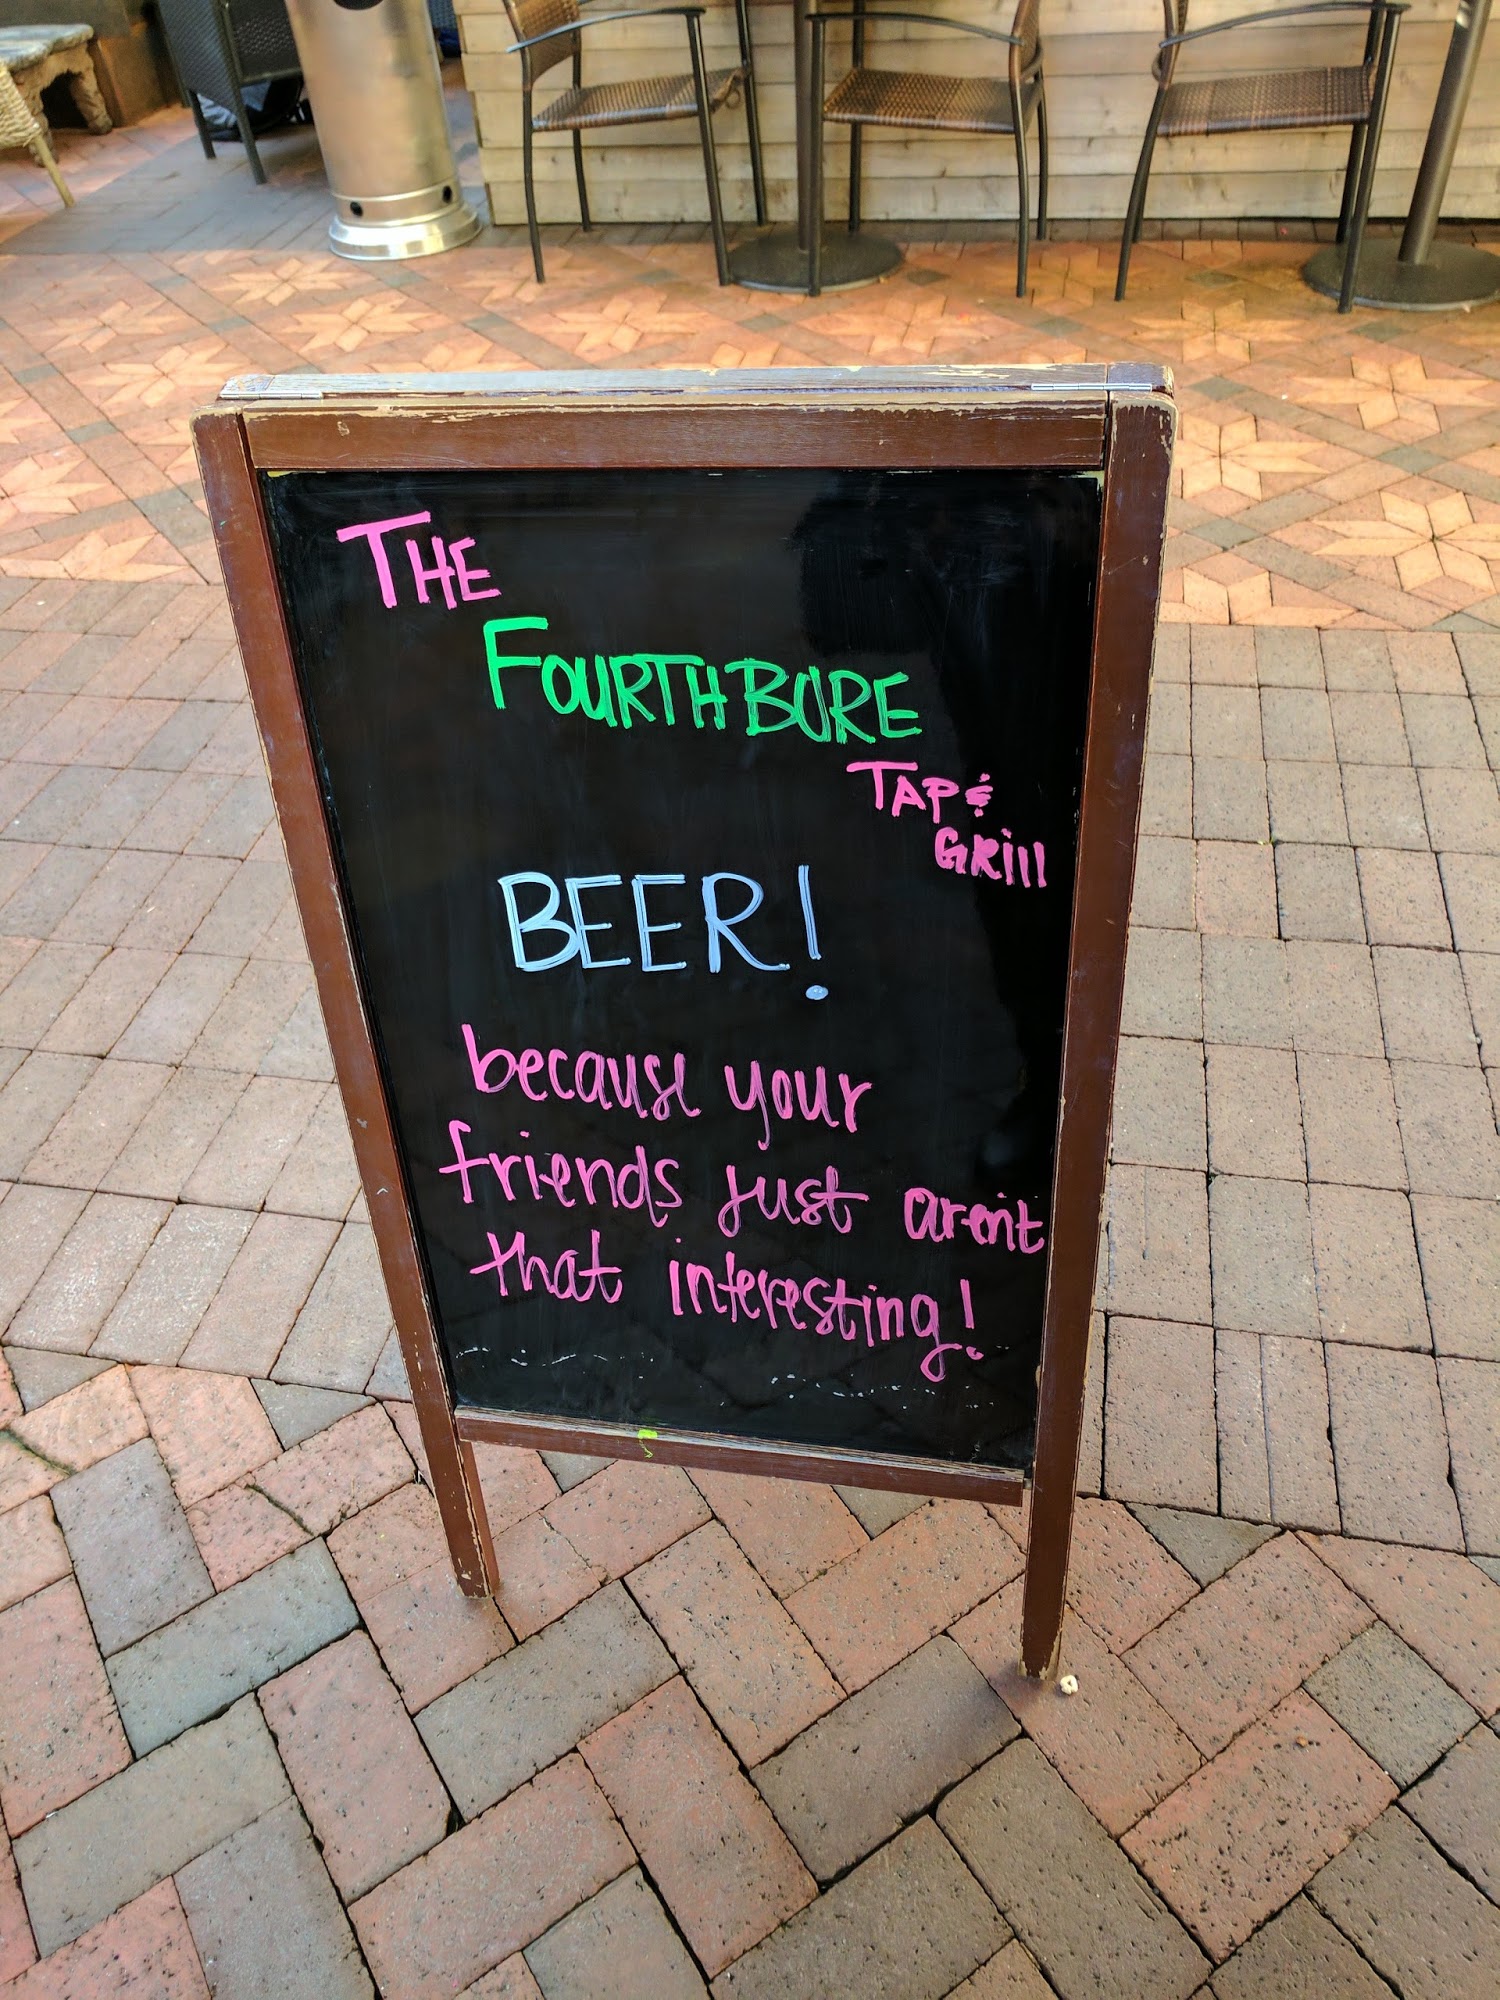 THE
FOURTH BORE
TAP &
GRill
BEER!
because your
friends just aren't
that interesting!